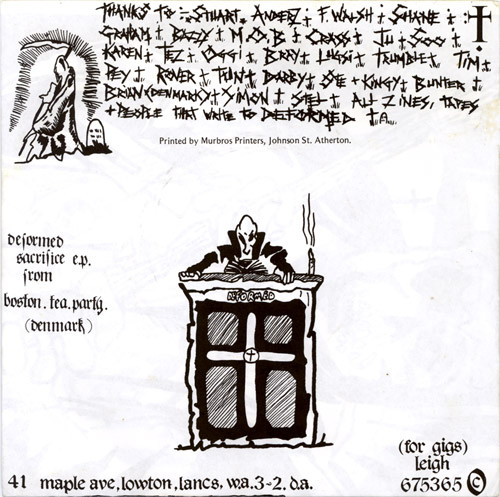 THANKS TO :- STUART. ANDERZ. F. WALSH. SHANE.
GRAHAM. BAZZY. M.O.B. CRASS. JU. SOO.
KAREN. TEZ. OGGI. BRRY. LUGSI. TRUMBLE. TIM.
PEY. ROVER. TUIN. DARBY. STE + KINGY. BUNTER.
BRIAN (DENMARK). SIMON. STEL. ALL ZINES, TAPES
+ PEOPLE THAT WRITE TO DEFORMED TA.
Printed by Murbros Printers, Johnson St. Atherton.
deformed
sacrifice e.p.
from
boston. tea. party.
(denmark)
DEFORMED
(for gigs)
leigh
675365 ©
41 maple ave, lowton, lancs, w.a.3-2. d.a.